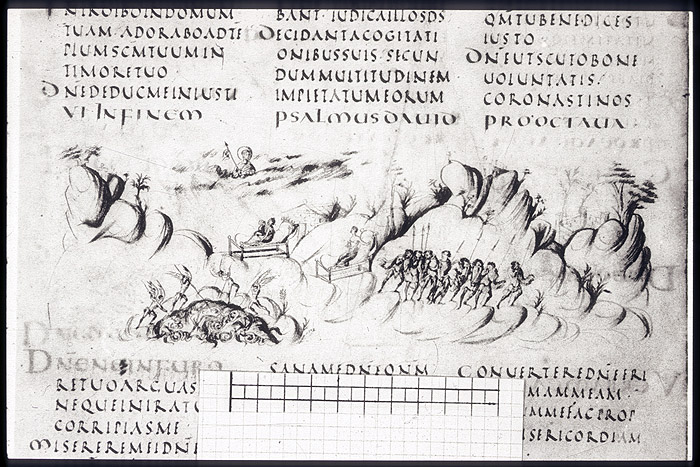 NTROIBOINDOMUM
TUAM ADORABOADTE
PLUMSCMTUUMIN
TIMORETUO
DNEDEDUCMEINIUSTI
BANT IUDICAILLOSDS
DECIDANTACOGITATI
ONIBUSSUIS SECUN
DUMMULTITUDINEM
IMPIETATUMEORUM
QMTUBENEDICES
IUSTO
DNEUTSCUTOBONE
UOLUNTATIS
CORONASTINOS
VI INFINEM PSALMUSDAUID PROOCTAUA
DNENEINFURO
RETUOARGUAS
NEQUEINIRAT
CORRIPIASME
MISEREREMEIDNE
SANAMEDNEONM
CONUERTEREDNEERI
MAMMEAM
MMEFACPROP
SERICORDIAM